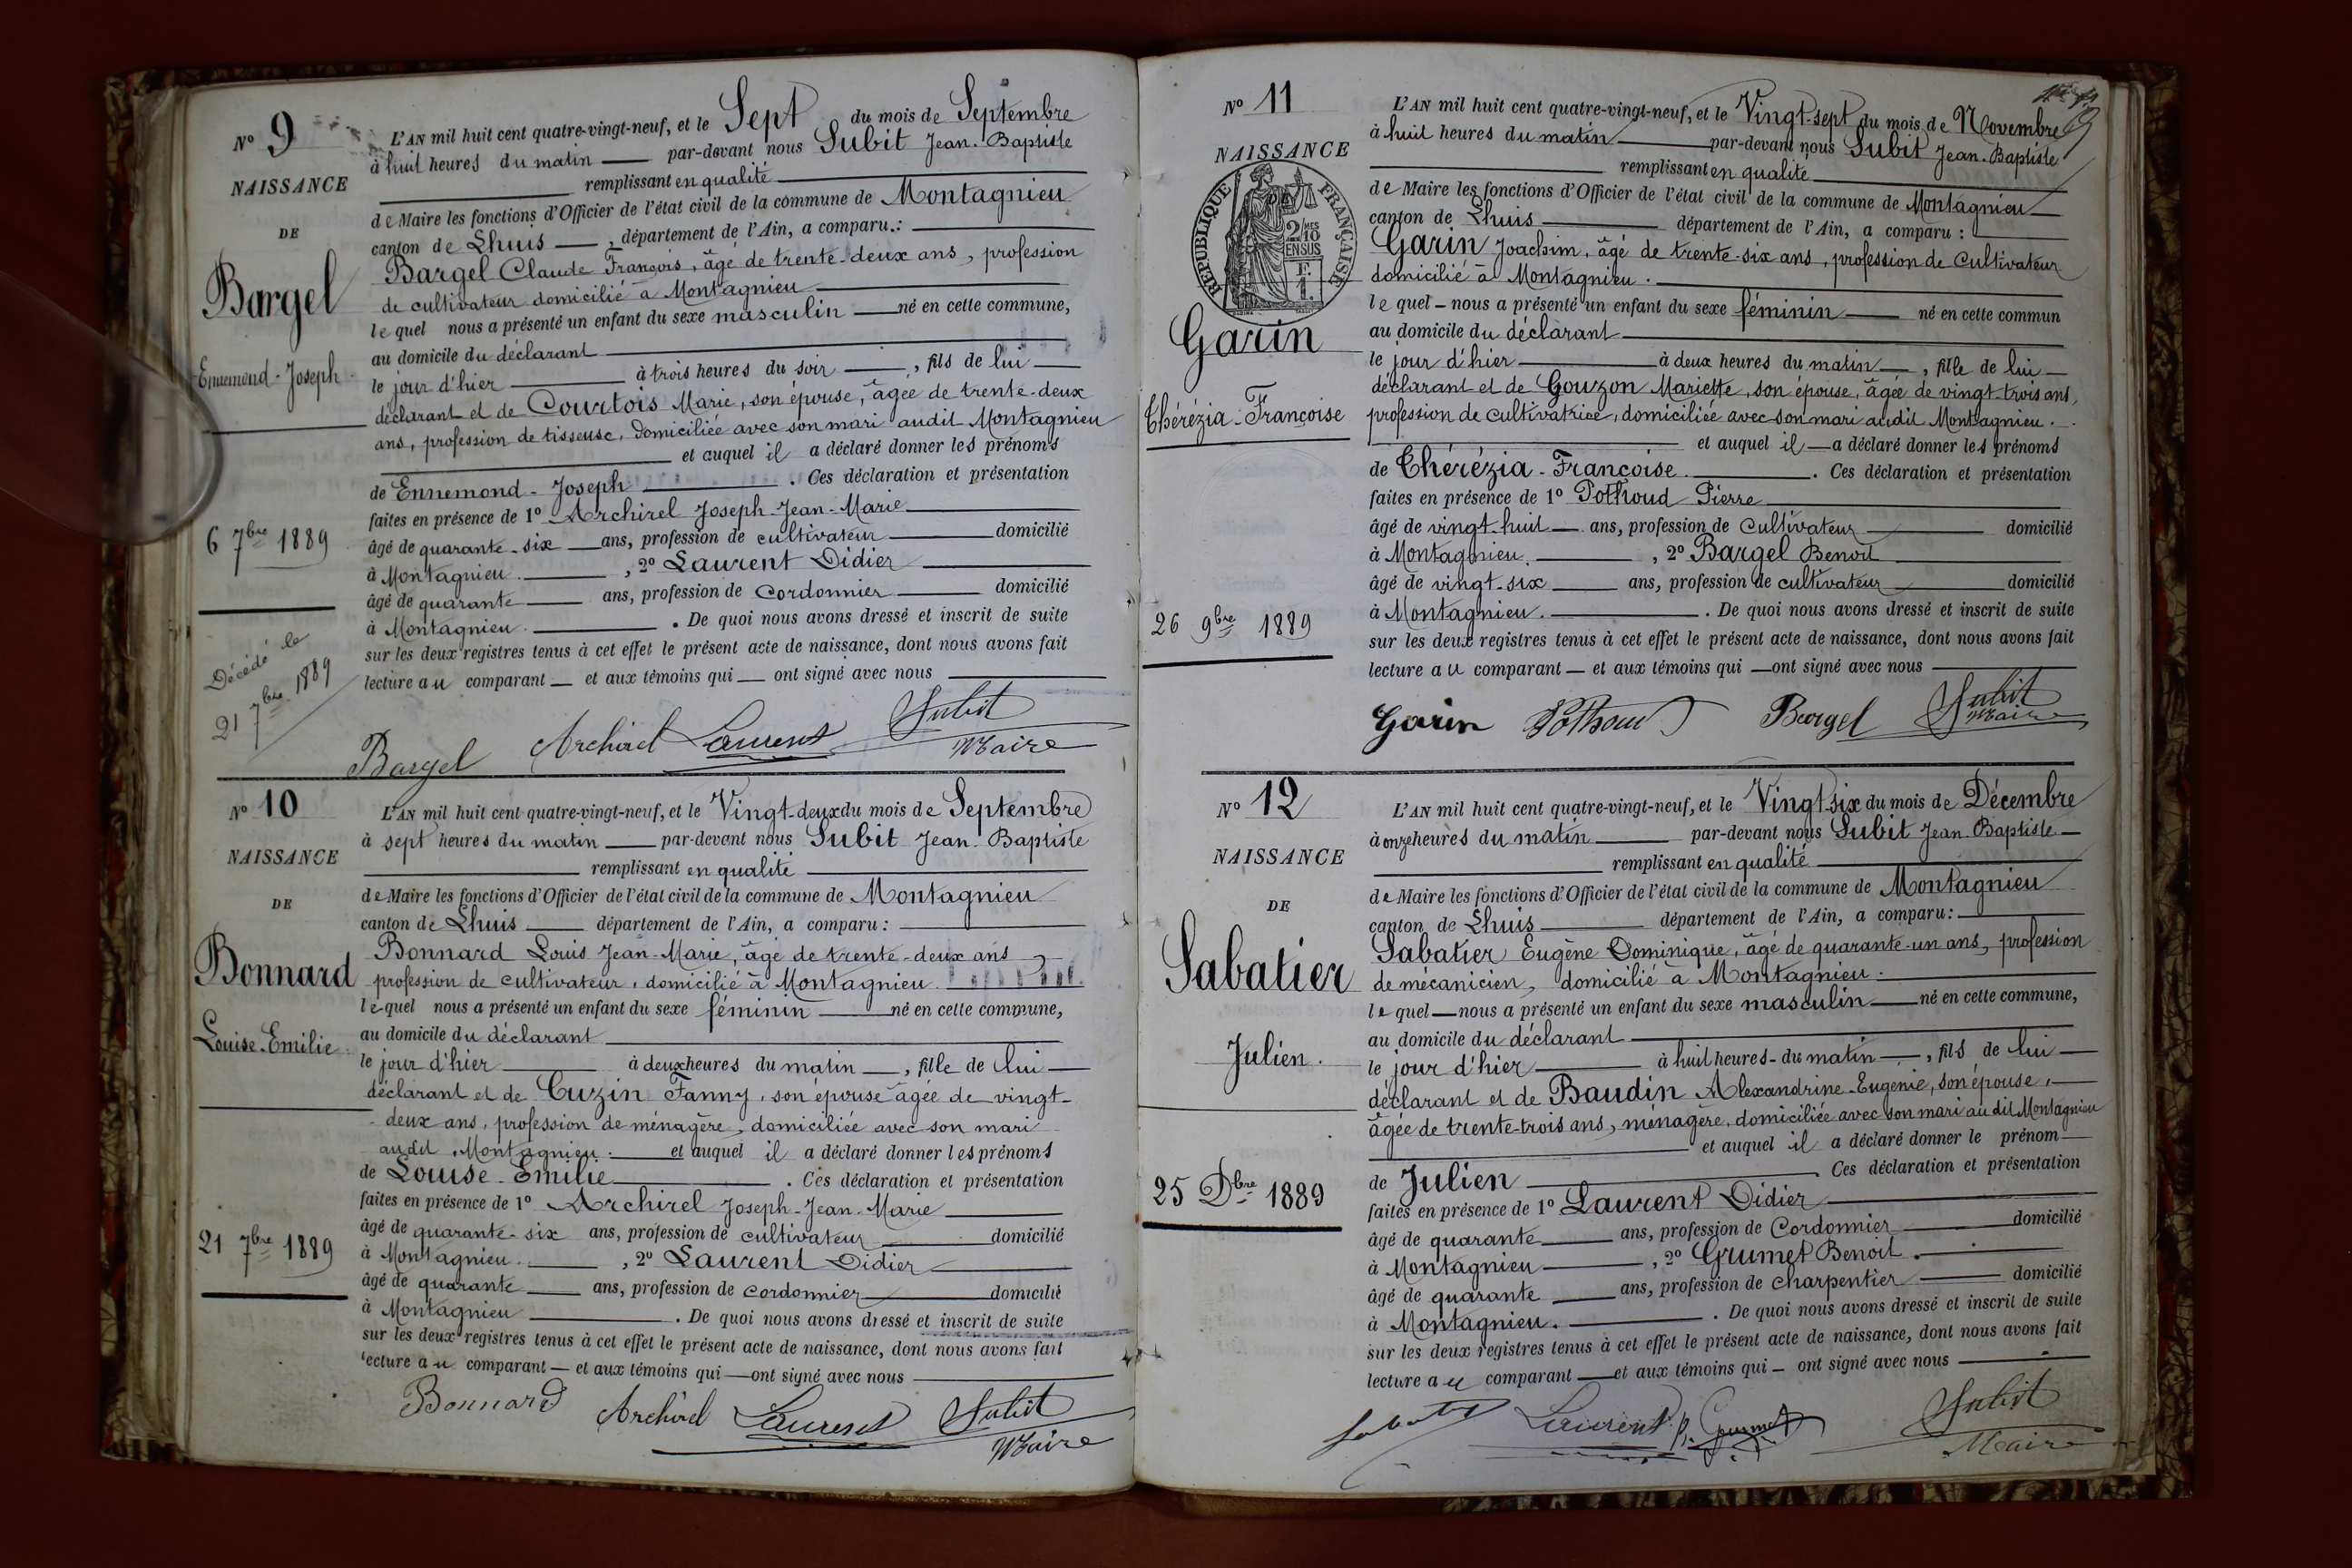 N° 9
NAISSANCE
DE
Bargel
Ennemond-Joseph
6 7bre 1889
Décédé le
21 7bre 1889
L'AN mil huit cent quatre-vingt-neuf, et le Sept du mois de Septembre
à huit heures du matin par-devant nous Subit Jean-Baptiste
remplissant en qualité
de Maire les fonctions d'Officier de l'état civil de la commune de Montagnieu
canton de Lhuis, département de l'Ain, a comparu :
Bargel Claude François, âgé de trente-deux ans, profession
de cultivateur domicilié à Montagnieu
lequel nous a présenté un enfant du sexe masculin né en cette commune,
au domicile du déclarant
le jour d'hier à trois heures du soir, fils de lui
déclarant et de Courtois Marie, son épouse, âgée de trente-deux
ans, profession de tisseuse, domiciliée avec son mari audit Montagnieu
et auquel il a déclaré donner les prénoms
de Ennemond-Joseph. Ces déclaration et présentation
faites en présence de 1° Archirel Joseph-Jean-Marie
âgé de quarante-six ans, profession de cultivateur domicilié
à Montagnieu, 2° Laurent Didier
âgé de quarante ans, profession de Cordonnier domicilié
à Montagnieu. De quoi nous avons dressé et inscrit de suite
sur les deux registres tenus à cet effet le présent acte de naissance, dont nous avons fait
lecture au comparant et aux témoins qui ont signé avec nous
Bargel Archirel Laurent Subit
Maire
N° 10
NAISSANCE
DE
Bonnard
Louise-Emilie
21 7bre 1889
L'AN mil huit cent quatre-vingt-neuf, et le Vingt-deux du mois de Septembre
à sept heures du matin par-devant nous Subit Jean-Baptiste
remplissant en qualité
de Maire les fonctions d'Officier de l'état civil de la commune de Montagnieu
canton de Lhuis département de l'Ain, a comparu :
Bonnard Louis Jean-Marie, âgé de trente-deux ans
profession de cultivateur, domicilié à Montagnieu
lequel nous a présenté un enfant du sexe féminin né en cette commune,
au domicile du déclarant
le jour d'hier à deux heures du matin, fille de lui
déclarant et de Cuzin Fanny, son épouse âgée de vingt-
deux ans, profession de ménagère, domiciliée avec son mari
audit Montagnieu. et auquel il a déclaré donner les prénoms
de Louise-Emilie. Ces déclaration et présentation
faites en présence de 1° Archirel Joseph-Jean-Marie
âgé de quarante-six ans, profession de cultivateur domicilié
à Montagnieu, 2° Laurent Didier
âgé de quarante ans, profession de cordonnier domicilié
à Montagnieu. De quoi nous avons dressé et inscrit de suite
sur les deux registres tenus à cet effet le présent acte de naissance, dont nous avons fait
lecture au comparant et aux témoins qui ont signé avec nous
Bonnard Archirel Laurent Subit
Maire
N° 11
NAISSANCE
DE
RÉPUBLIQUE FRANÇAISE
2/10
EN SUS
F.
1.
Garin
Thérézia-Françoise
26 9bre 1889
L'AN mil huit cent quatre-vingt-neuf, et le Vingt-sept du mois de Novembre
à huit heures du matin par-devant nous Subit Jean-Baptiste
remplissant en qualité
de Maire les fonctions d'Officier de l'état civil de la commune de Montagnieu
canton de Lhuis département de l'Ain, a comparu :
Garin Joachim, âgé de trente-six ans, profession de Cultivateur
domicilié à Montagnieu.
lequel nous a présenté un enfant du sexe féminin né en cette commun
au domicile du déclarant
le jour d'hier à deux heures du matin, fille de lui
déclarant et de Gouzon Mariette, son épouse, âgée de vingt-trois ans,
profession de cultivatrice, domiciliée avec son mari audit Montagnieu.
et auquel il a déclaré donner les prénoms
de Thérézia-Françoise. Ces déclaration et présentation
faites en présence de 1° Pothoud Pierre
âgé de vingt-huit ans, profession de Cultivateur domicilié
à Montagnieu, 2° Bargel Benoit
âgé de vingt-six ans, profession de cultivateur domicilié
à Montagnieu. De quoi nous avons dressé et inscrit de suite
sur les deux registres tenus à cet effet le présent acte de naissance, dont nous avons fait
lecture au comparant et aux témoins qui ont signé avec nous
Garin Pothoud Bargel Subit
Maire
N° 12
NAISSANCE
DE
Sabatier
Julien.
25 Dbre 1889
L'AN mil huit cent quatre-vingt-neuf, et le Vingt-six du mois de Décembre
à onze heures du matin par-devant nous Subit Jean-Baptiste
remplissant en qualité
de Maire les fonctions d'Officier de l'état civil de la commune de Montagnieu
canton de Lhuis département de l'Ain, a comparu :
Sabatier Eugène Dominique, âgé de quarante-un ans, profession
de mécanicien, domicilié à Montagnieu.
lequel nous a présenté un enfant du sexe masculin né en cette commune,
au domicile du déclarant
le jour d'hier à huit heures du matin, fils de lui
déclarant et de Baudin Alexandrine-Eugénie, son épouse,
âgée de trente-trois ans, ménagère, domiciliée avec son mari au dit Montagnieu
et auquel il a déclaré donner le prénom
de Julien Ces déclaration et présentation
faites en présence de 1° Laurent Didier
âgé de quarante ans, profession de Cordonnier domicilié
à Montagnieu, 2° Grumet Benoit.
âgé de quarante ans, profession de charpentier domicilié
à Montagnieu. De quoi nous avons dressé et inscrit de suite
sur les deux registres tenus à cet effet le présent acte de naissance, dont nous avons fait
lecture au comparant et aux témoins qui ont signé avec nous
Sabatier Laurent B. Grumet Subit
Maire